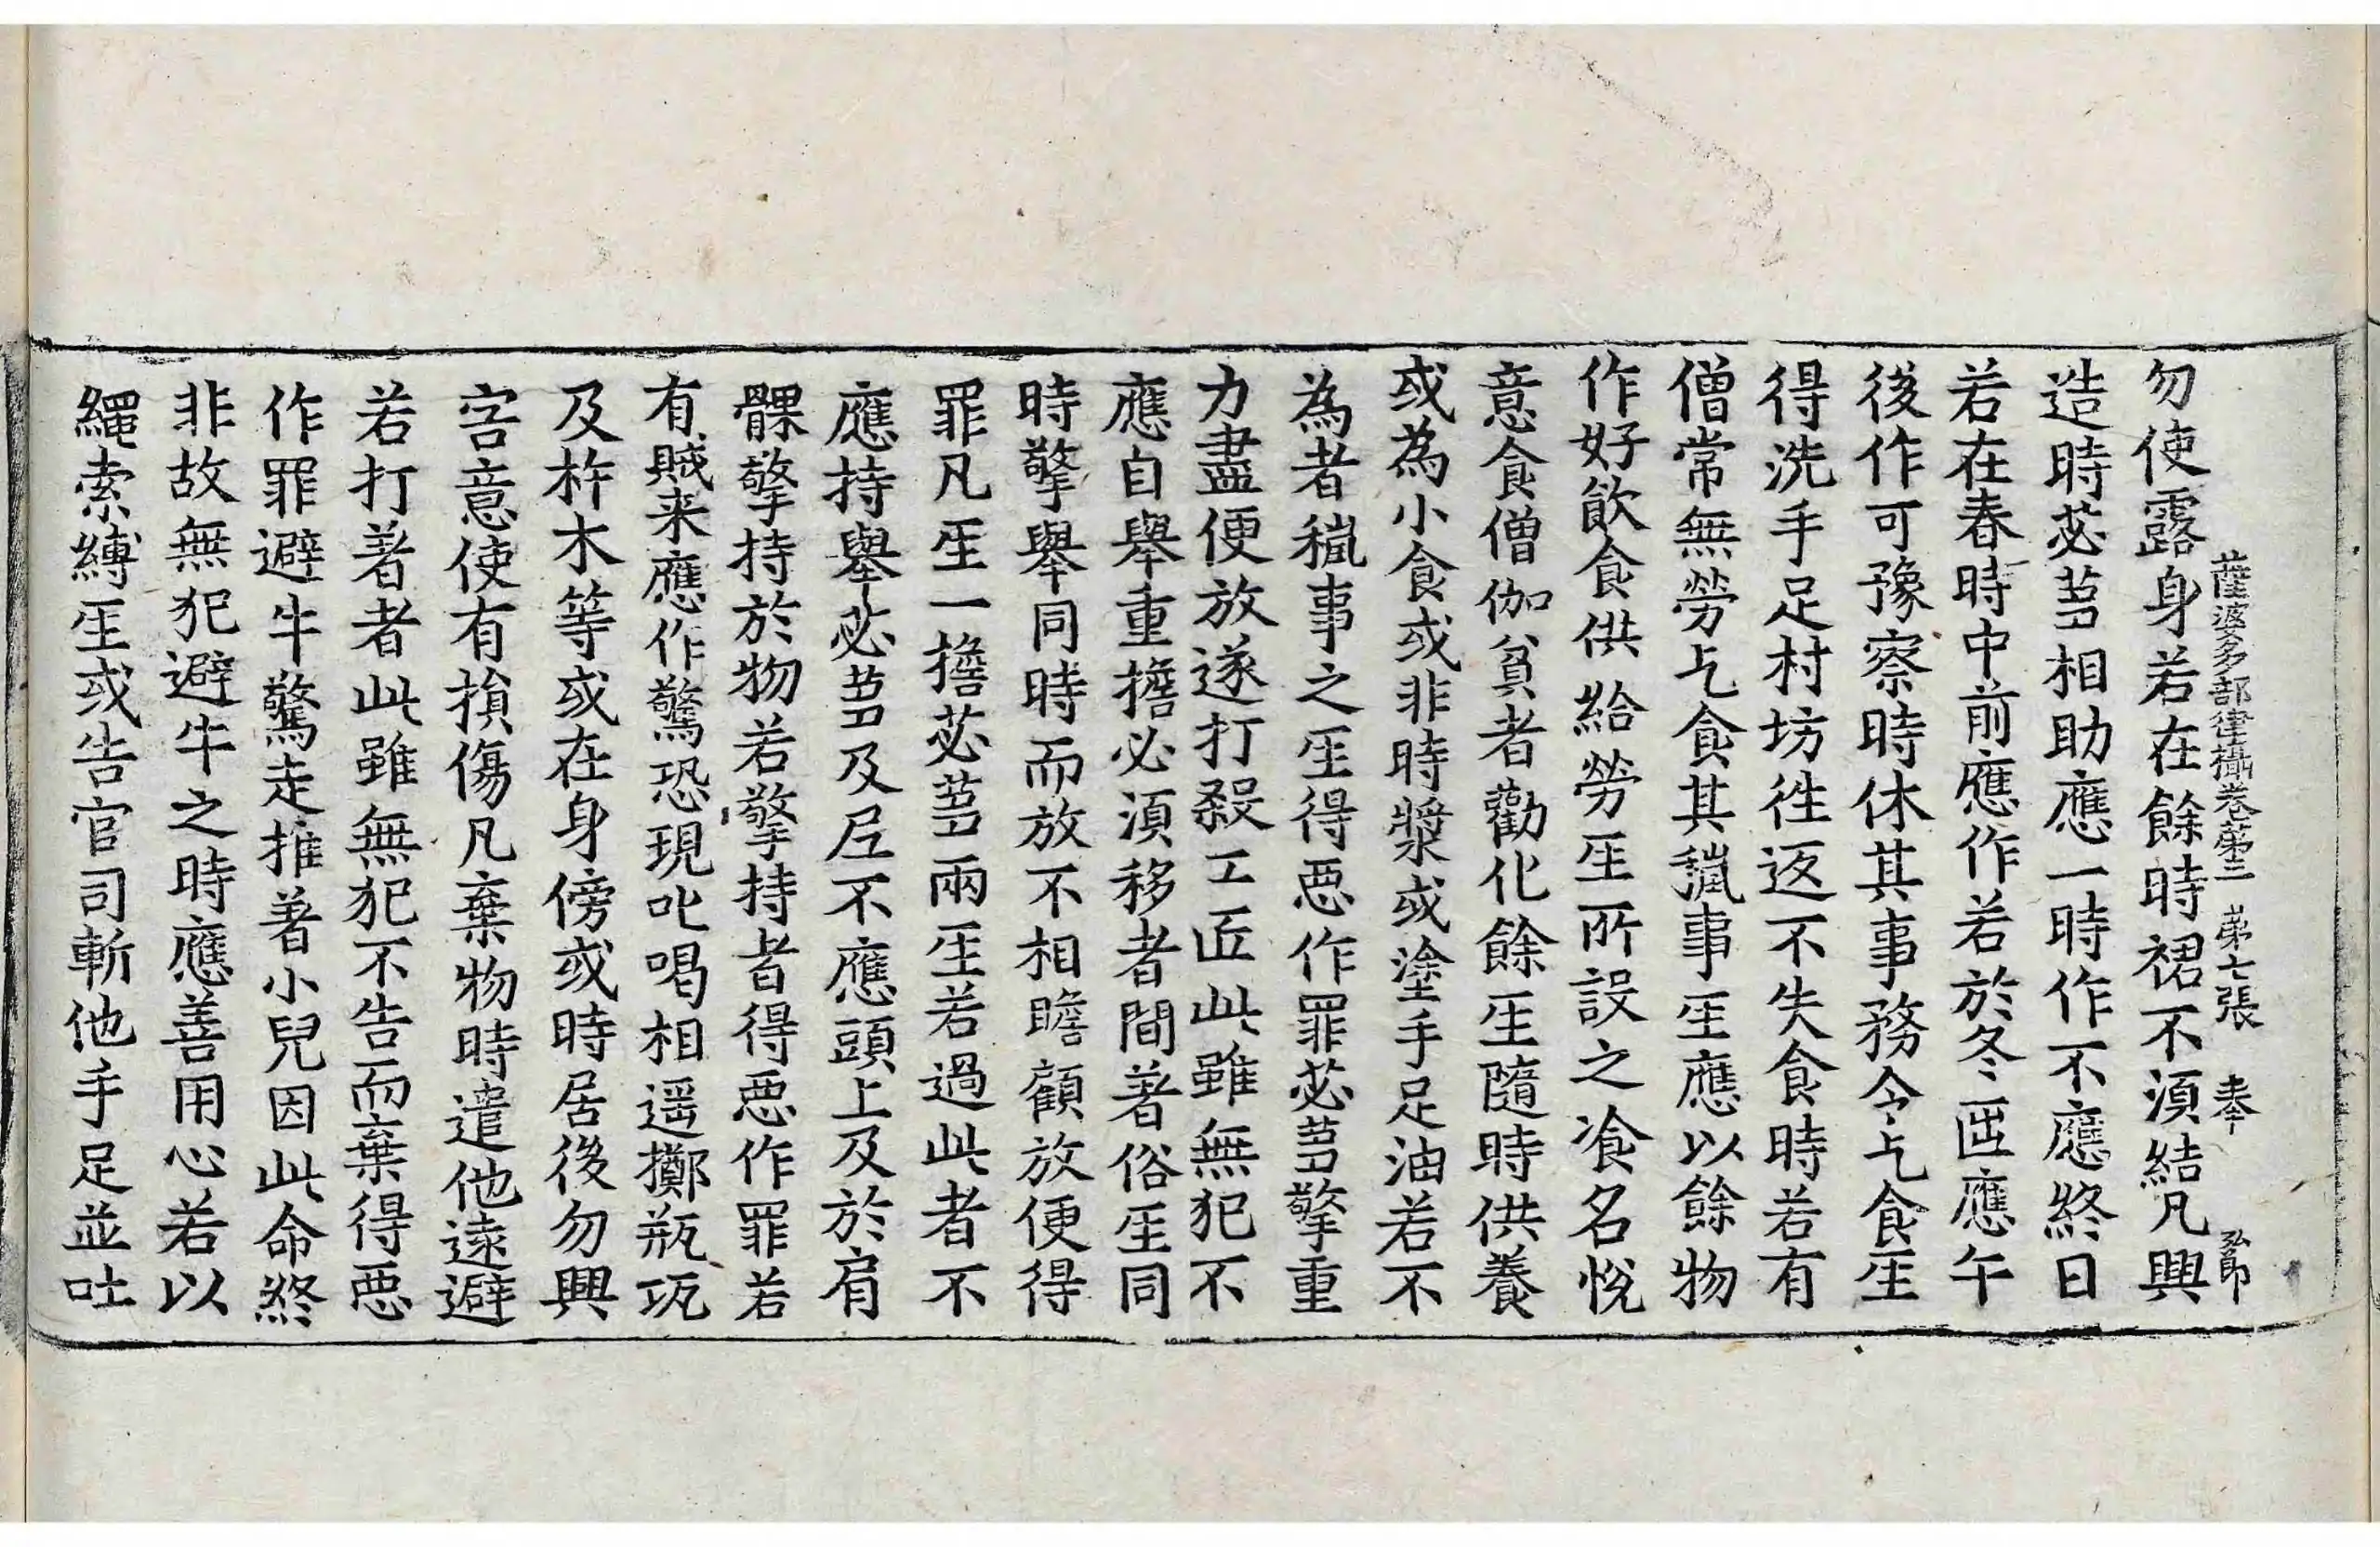 薩婆多部律攝卷第三 第七張 奉
勿使露身若在餘時裙不湏結凡興
造時苾蒭相助應一時作不應終日
若在春時中前應作若於冬𠥱應午
後作可豫察時休其事務令乞食𤯔
得洗手足村坊徃返不失食時若有
僧常無勞乞食其羸事𤯔應以餘物
作好飲食供給勞𤯔所設之飡名悅
意食僧伽貧者勸化餘𤯔隨時供養
或為小食或非時漿或塗手足油若不
為者羸事之𤯔得惡作罪苾蒭擎重
力盡便放遂打殺工匠此雖無犯不
應自舉重擔必湏移者間著俗𤯔同
時擎舉同時而放不相瞻顧放便得
罪凡𤯔一擔苾蒭兩𤯔若過此者不
應持舉苾蒭及尼不應頭上及於肩
髁擎持於物若擎持者得惡作罪若
有賊来應作驚恐現叱喝相遥擲瓶瓨
及杵木等或在身傍或時居後勿興
害意使有損傷凡棄物時遣他遠避
若打著者此雖無犯不告而棄得惡
作罪避牛驚走推著小兒因此命終
非故無犯避牛之時應善用心若以
繩索縛𤯔或告官司斬他手足並吐